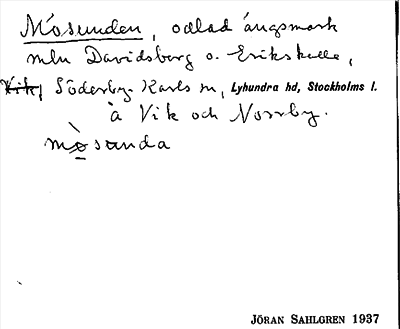 Mosunden, odlad ängsmark
mln Davidsberg o. Erikskulle,
Vik, Söderby-Karls sn, Lyhundra hd, Stockholms l.
à Vik och Norrby.
mòsunda
JÖRAN SAHLGREN 1937